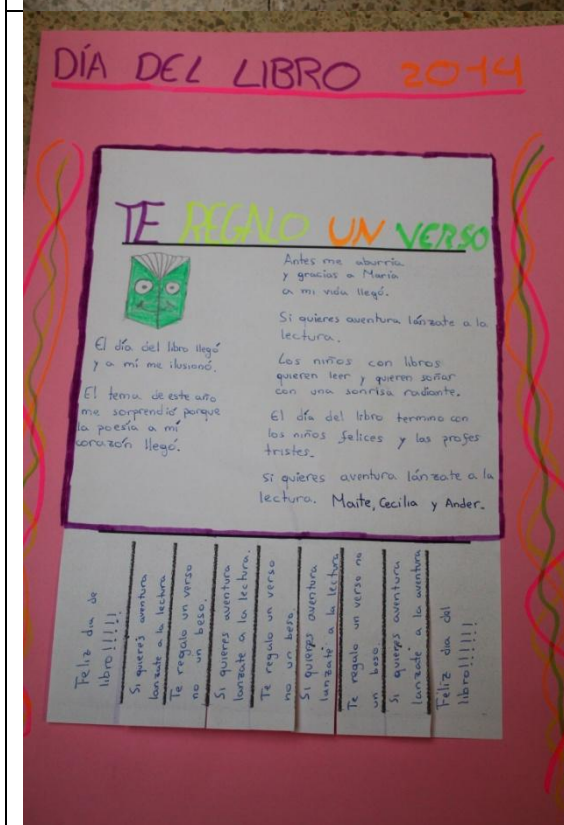 DÍA DEL LIBRO 2014
TE REGALO UN VERSO
El día del libro llegó
y a mí me ilusionó.
El tema de este año
me sorprendió porque
la poesía a mi
corazón llegó.
Antes me aburría
y gracias a María
a mi vida llegó.
Si quieres aventura lánzate a la
lectura.
Los niños con libros
quieren leer y quieren soñar
con una sonrisa radiante.
El día del libro termino con
los niños felices y las profes
tristes.
Si quieres aventura lánzate a la
lectura. Maite, Cecilia y Ander.
Feliz dia de
libro!!!!!
Si quieres aventura
lanzate a la lectura
Te regalo un verso
no un beso.
Si quieres aventura
lanzate a la lectura.
Te regalo un verso
no un beso.
Si quieres aventura
lanzate a la lectura
Te regalo un verso no
un beso.
Si quieres aventura
lanzate a la aventura
Feliz dia del
libro!!!!!!